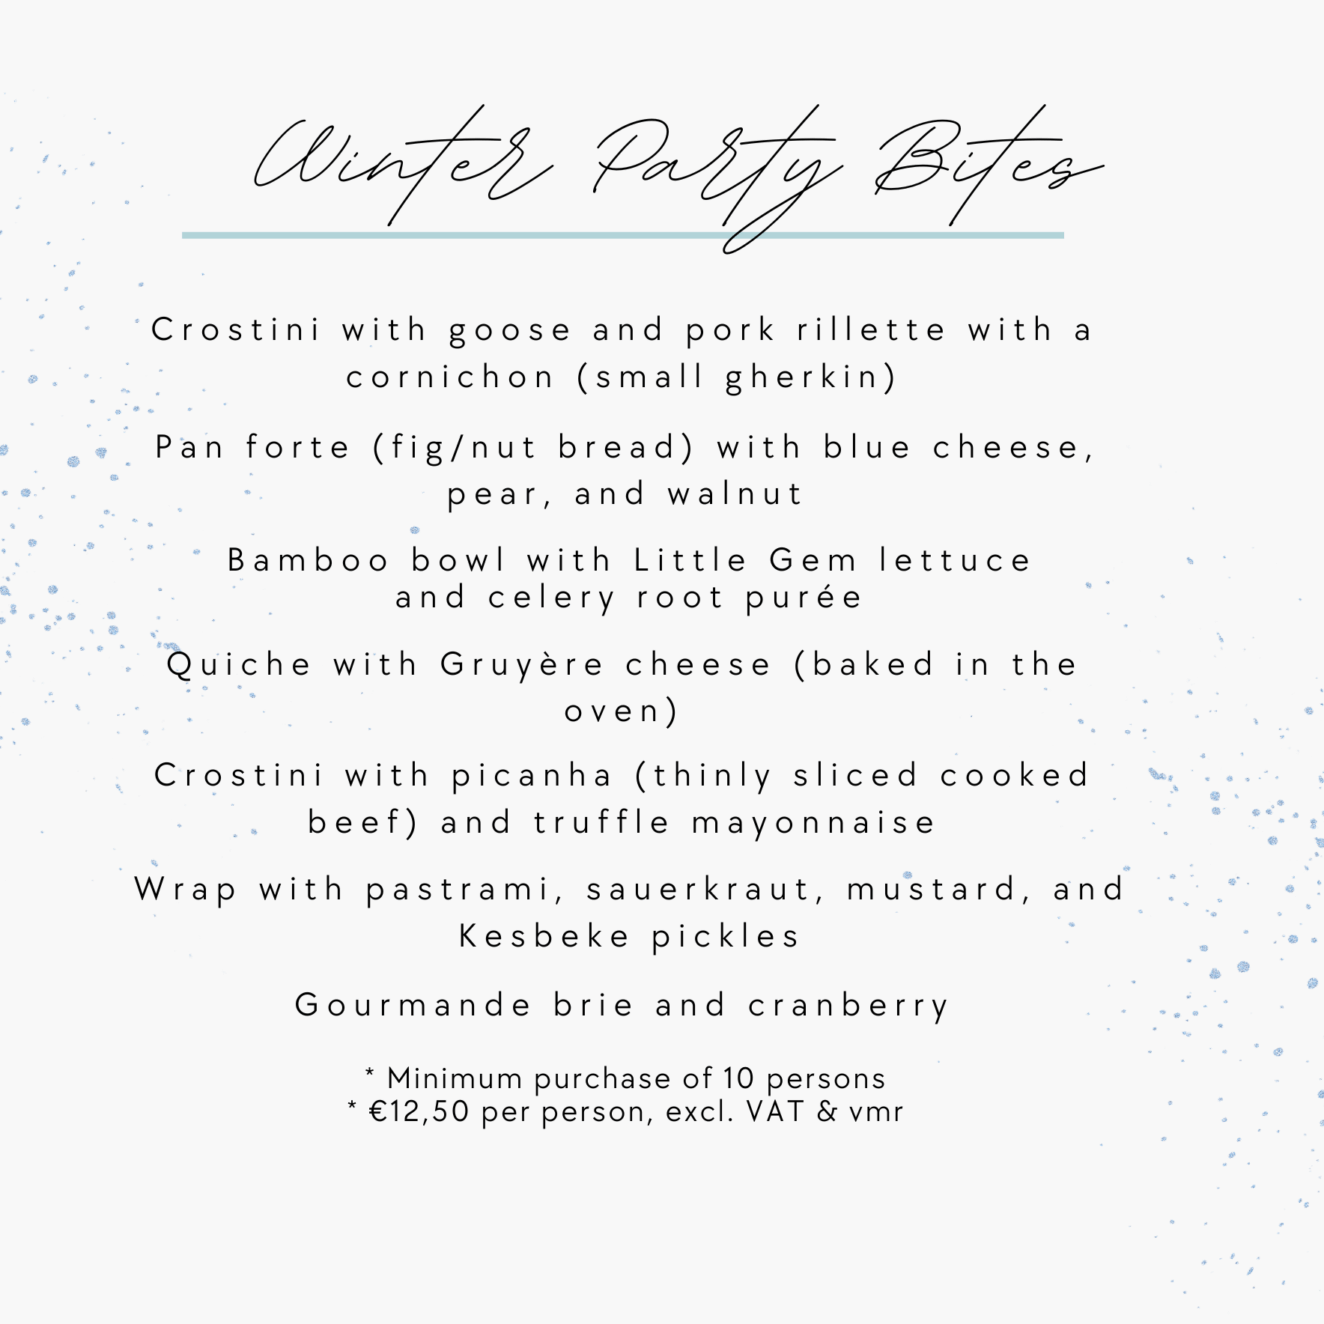 Winter Party Bites
Crostini with goose and pork rillette with a
cornichon (small gherkin)
Pan forte (fig/nut bread) with blue cheese,
pear, and walnut
Bamboo bowl with Little Gem lettuce
and celery root purée
Quiche with Gruyère cheese (baked in the
oven)
Crostini with picanha (thinly sliced cooked
beef) and truffle mayonnaise
Wrap with pastrami, sauerkraut, mustard, and
Kesbeke pickles
Gourmande brie and cranberry
* Minimum purchase of 10 persons
* €12,50 per person, excl. VAT & vmr